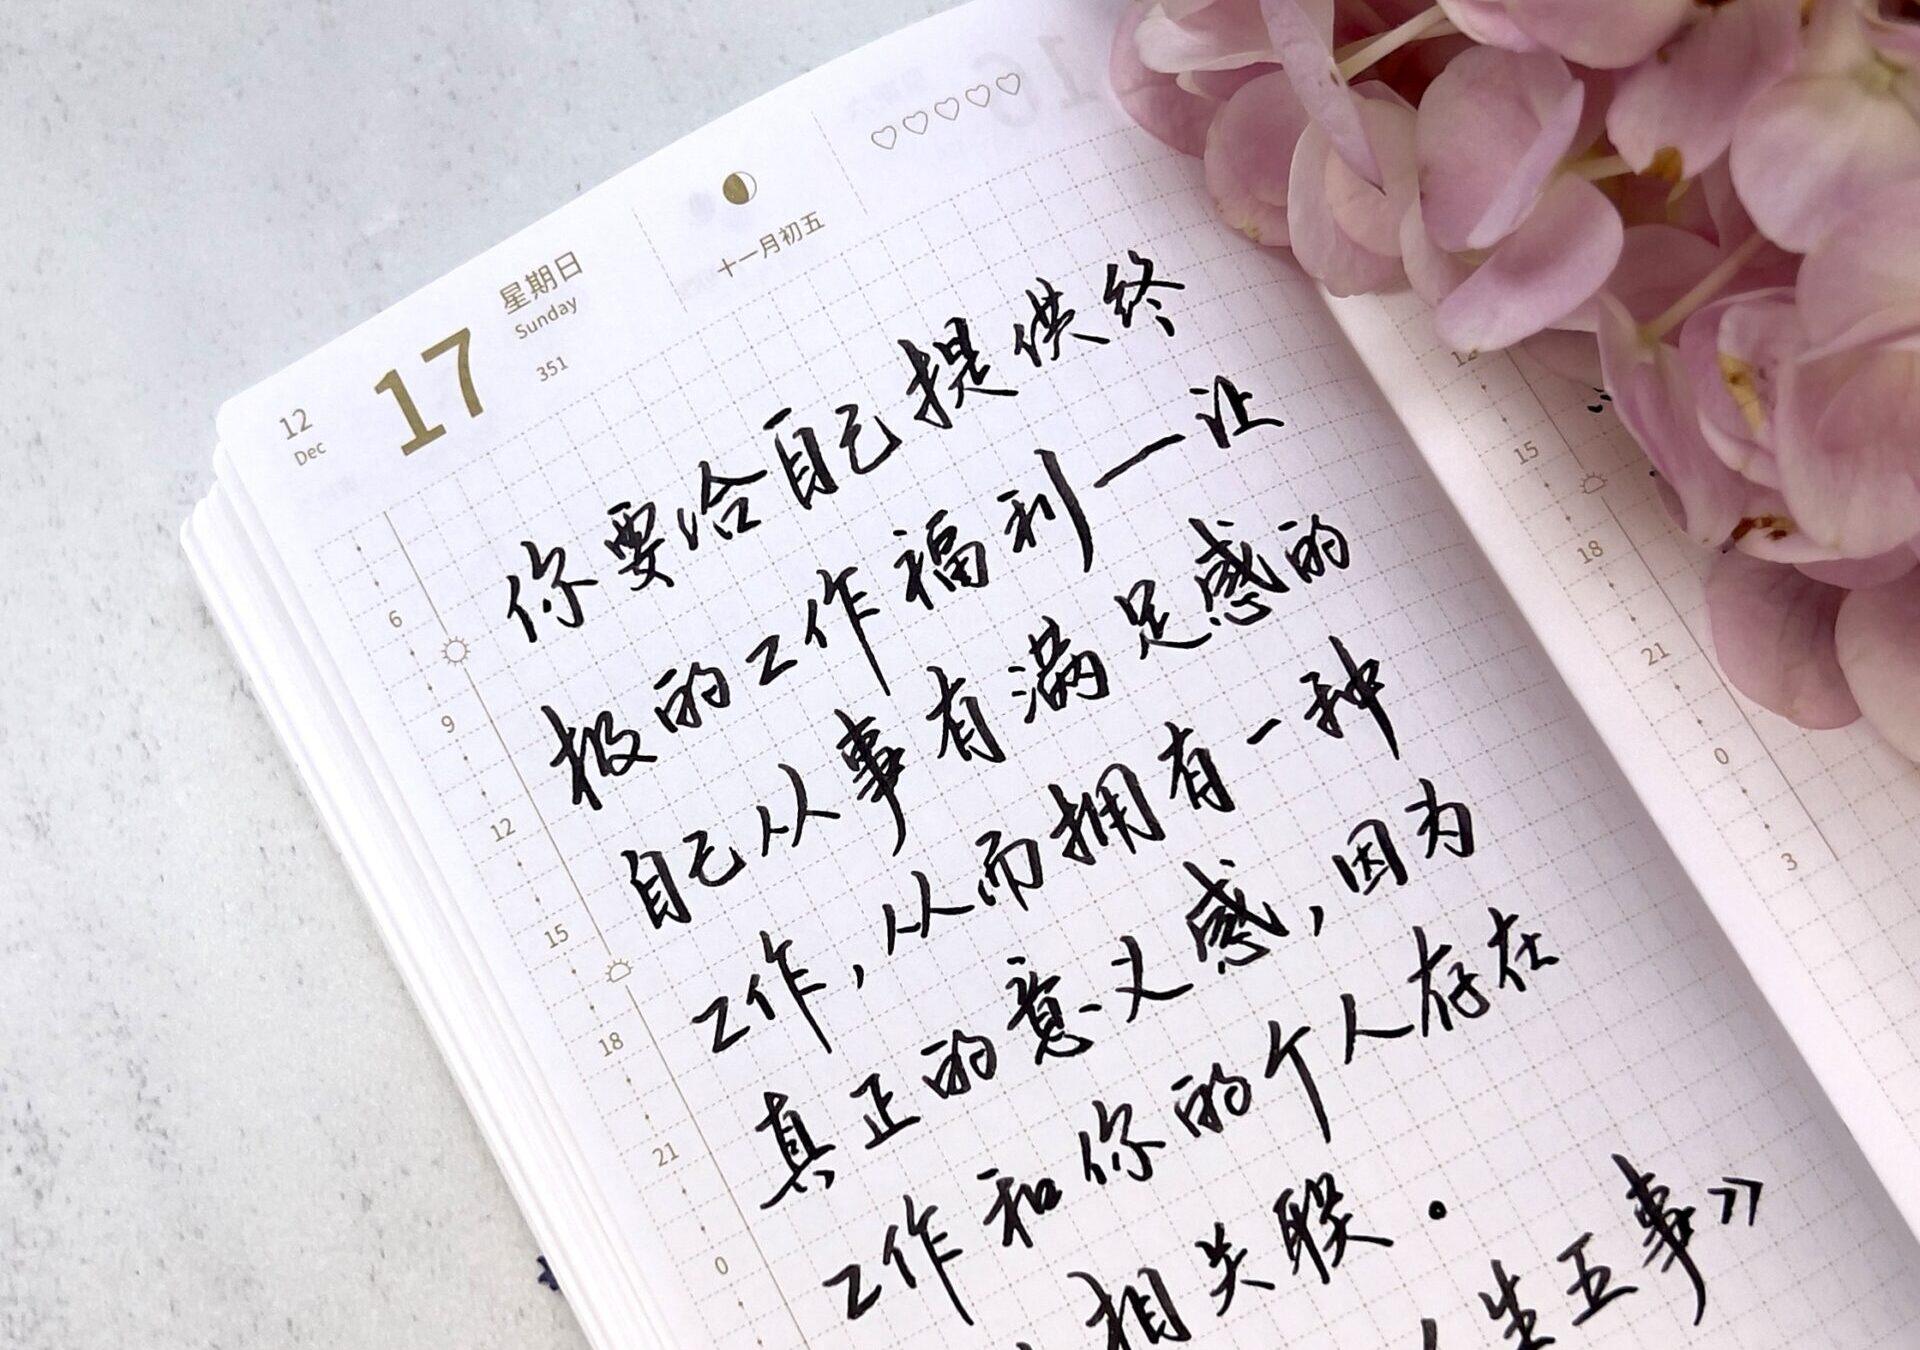 12
Dec
17
星期日
Sunday
351
十一月初五
16
你要给自己提供终
极的工作福利一让
自己从事有满足感的
工作，从而拥有一种
真正的意义感，因为
工作和你的个人存在
相关联.
生五事》
6
9
12
15
18
21
0
12
15
18
21
0
3